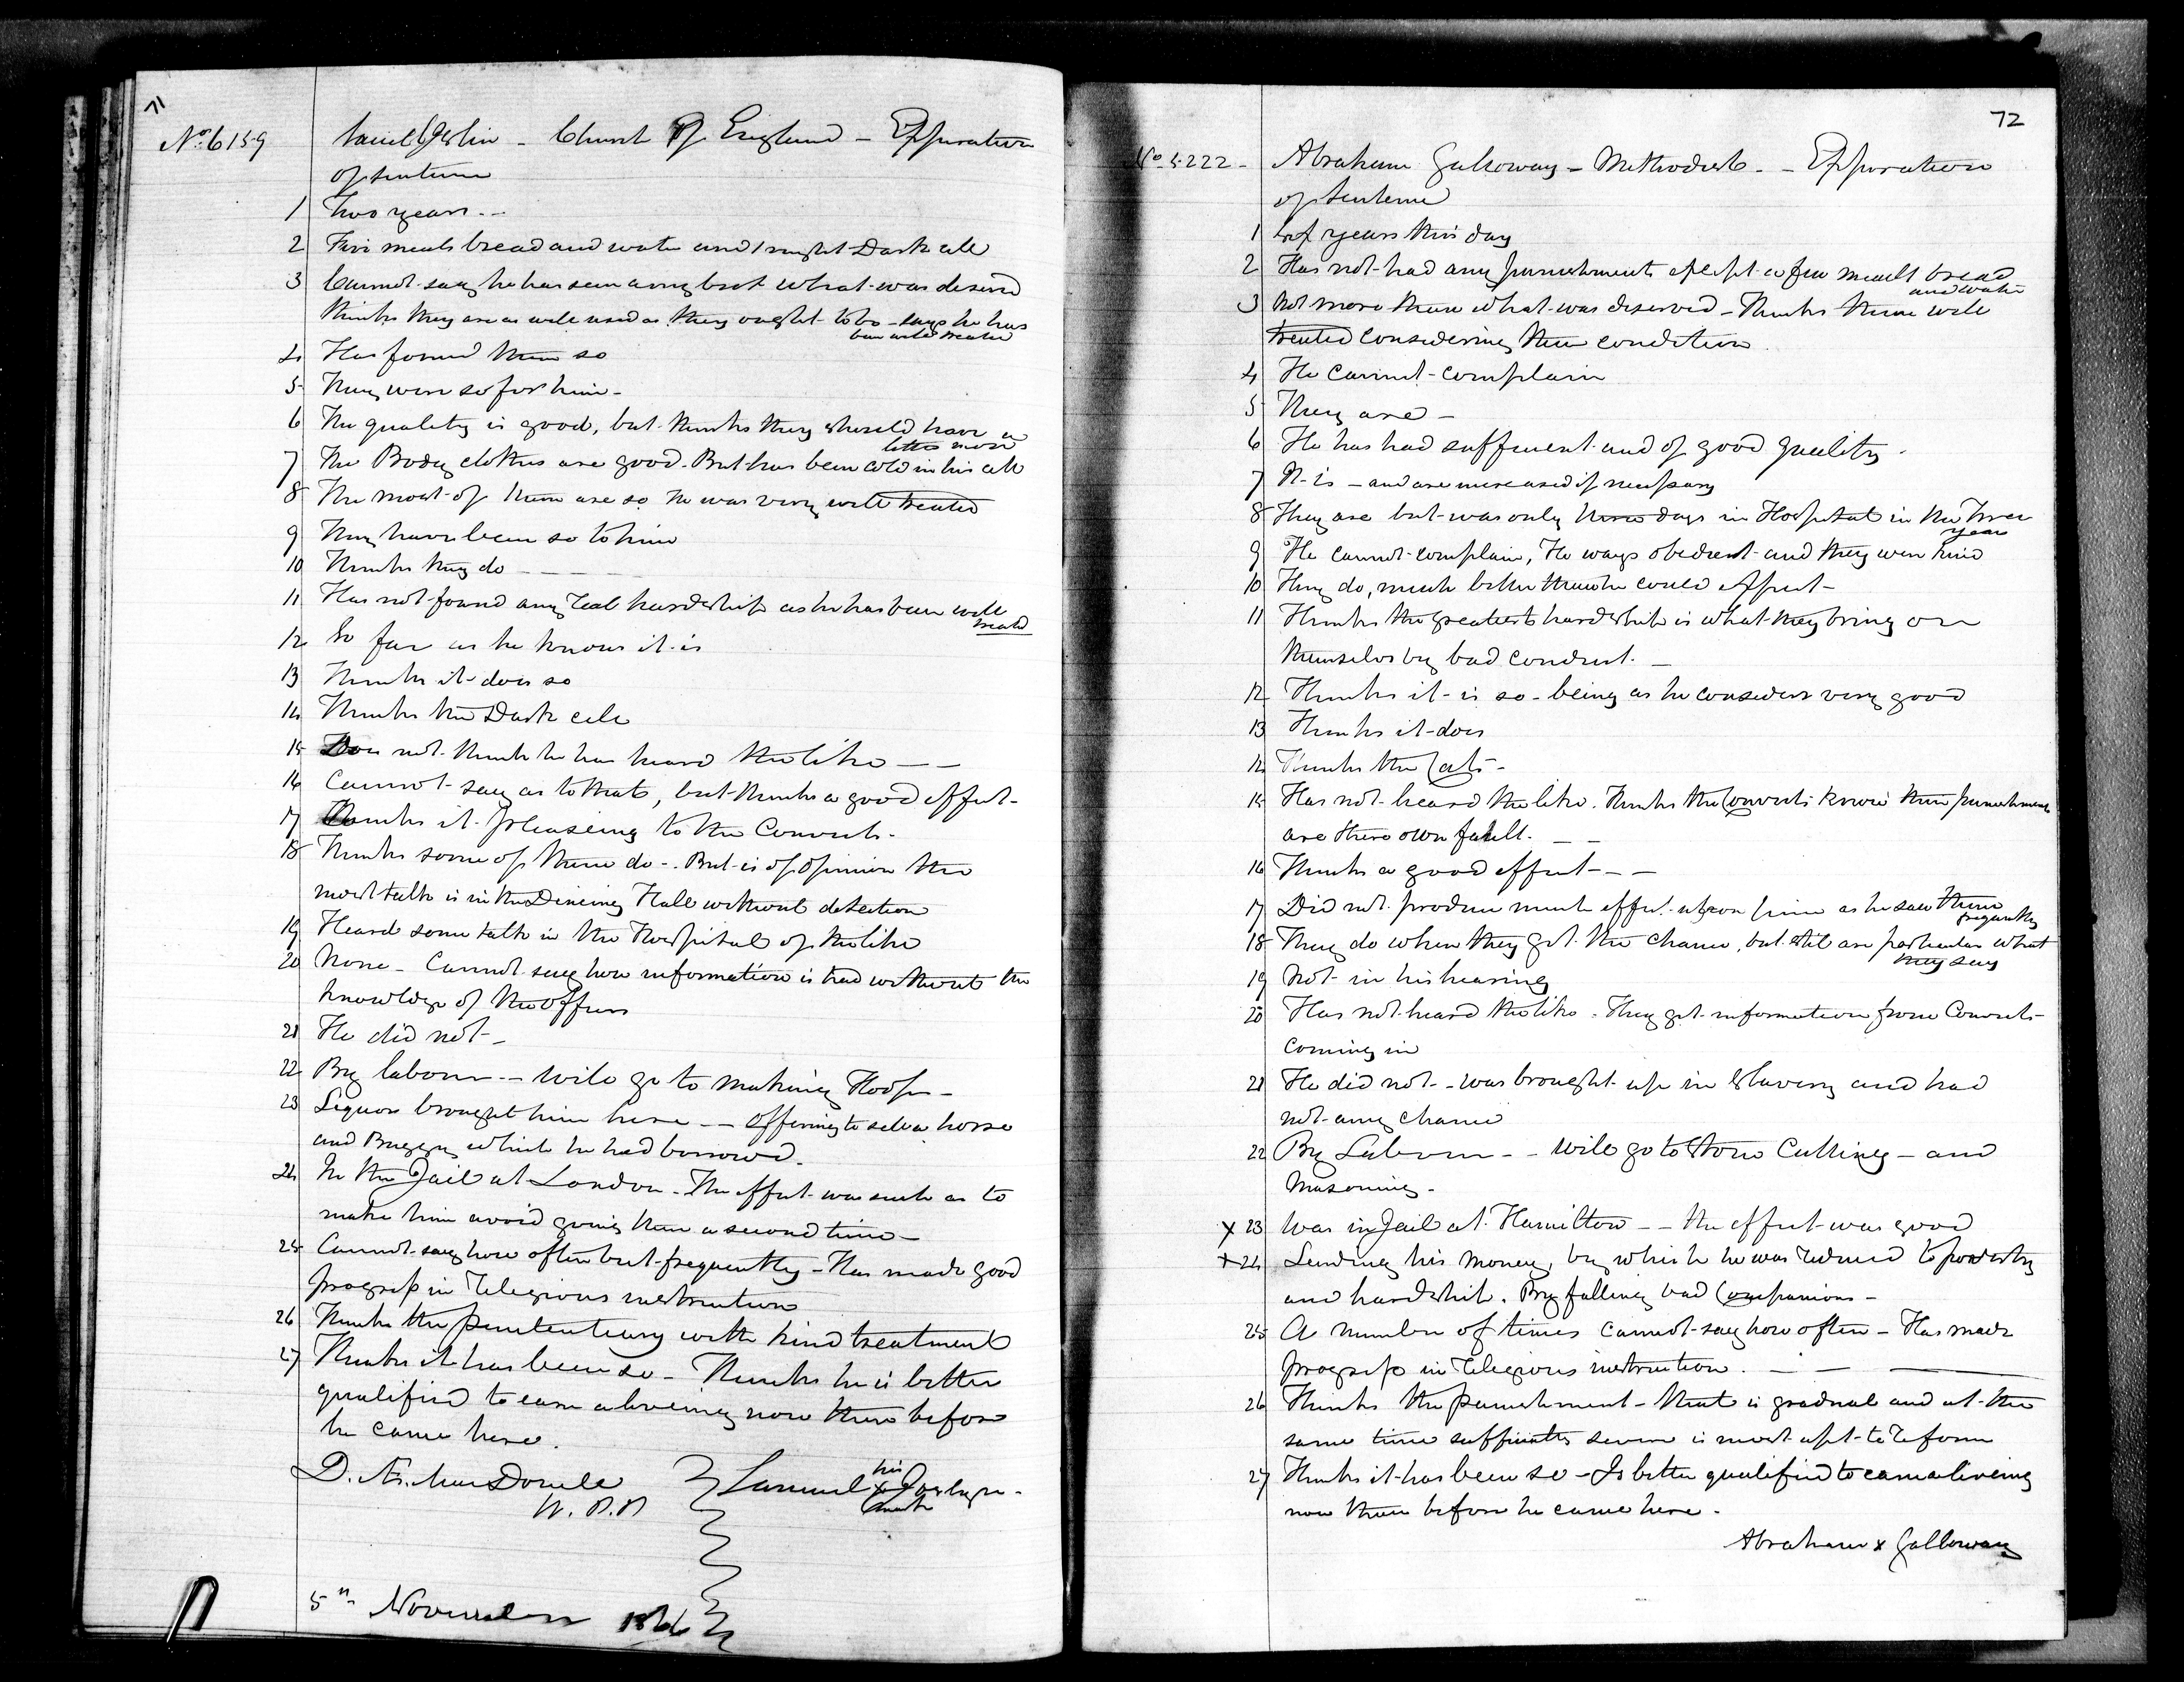 71
No 6159 Church Of England - Expiration
of sentence
1 Two years --
2 Five meals bread and water and 1 night Dark cell
3 Cannot say he has seen any but what was deserved
thinks they are as well used as they ought to be - says he has
been well treated
4 Has found them so
5 They were so for him -
6 The quality is good, but thinks they should have a
little more
7 The Body clothes are good. But has been cold in his cell
8 The most of them are so he was very well treated
9 They have been so to him
10 Thinks they do - - -
11 Has not found any real hardship as he has been well
treated
12 So far as he knows it is
13 Thinks it does so
14 Thinks the Dark cell
15 Does not think he has heard the like — —
16 Cannot say as to that, but thinks a good effect -
17 Thinks it pleaseing to the Convicts -
18 Thinks some of them do -. But is of opinion the
most talk is in the Dineing Hall without detection
19 Heard some talk in the Hospital of the like
20 None - Cannot say how information is had without the
knowledge of the officers
21 He did not -
22 By labour -- will go to making Hoops -
23 Liquor brought him here -- offering to sell a horse
and Buggy which he had borrowed -
24 In the Jail at London - The effect was such as to
make him avoid going there a second time -
25 Cannot say how often but frequently - Has made good
progress in religious instruction
26 Thinks the penitentiary with kind treatment
27 Thinks it has been so - Thinks he is better
qualified to earn a liveing now then before
he came here.
D. Æ. MacDonell
W. P. P. Samuel his x mark
5th November 1866
72
No 5222 - Abraham Galloway - Methodist - - Expiration
of sentence
1 years this day
2 Has not had any punishments except a few meals bread
and water
3 Not more than what was deserved - Thinks them well
treated considering their condition
4 He cannot complain
5 They are -
6 He has had sufficient and of good quality -
7 It is - and are increased if necessary
8 They are but was only three days in Hospital in the three
years
9 He cannot complain, He was obedient and they were kind
10 They do, much better than he could expect -
11 Thinks the greatest hardship is what they bring on
themselves by bad conduct. -
12 Thinks it is so - being as he considers very good
13 Thinks it does
14 Thinks the Cats -
15 Has not heard the like. Thinks the Convicts know their punishments
are there own falult. - -
16 Thinks a good effect - - -
17 Did not produce much effect upon him as he saw them
frequently
18 They do when they get the chance, but still are particular what
they say
19 Not in his hearing
20 Has not heard the like - They get information from Convicts
coming in
21 He did not - was brought up in Slavery and had
not any chance
22 By Labour - - will go to Stone Cutting - and
Masoning -
x 23 Was in Jail at Hamilton - - the effect was good
x 24 Lending his money, by which he was reduced to poverty
and hardship. By falling bad Companions -
25 A number of times cannot say how often - Has made
progress in religious instruction. - - —
26 Thinks the punishment - that is gradual and at the
same time sufficiently severe is most apt to reform
27 Thinks it has been so - Is better qualified to earn a liveing
now then before he came here -
Abraham x Galloway